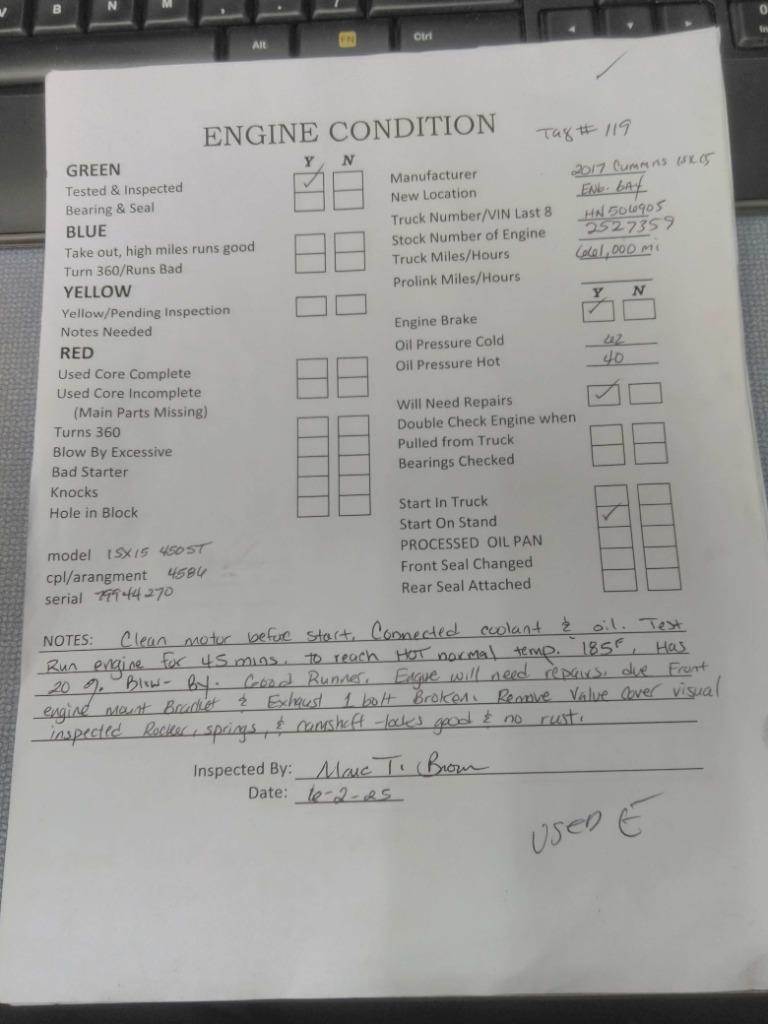 V B N M , . /
Alt FN Ctrl
ENGINE CONDITION Tag# 119
GREEN Y N
Tested & Inspected
Bearing & Seal
BLUE
Take out, high miles runs good
Turn 360/Runs Bad
YELLOW
Yellow/Pending Inspection
Notes Needed
RED
Used Core Complete
Used Core Incomplete
(Main Parts Missing)
Turns 360
Blow By Excessive
Bad Starter
Knocks
Hole in Block
model ISX15 450ST
cpl/arangment 4584
serial 79944270
Manufacturer 2017 Cummns ISX15
New Location ENG. BAY
Truck Number/VIN Last 8 HN506905
Stock Number of Engine 2527359
Truck Miles/Hours 661,000 mi
Prolink Miles/Hours
Y N
Engine Brake
Oil Pressure Cold 42
Oil Pressure Hot 40
Will Need Repairs
Double Check Engine when
Pulled from Truck
Bearings Checked
Start In Truck
Start On Stand
PROCESSED OIL PAN
Front Seal Changed
Rear Seal Attached
NOTES: Clean motor before start. Connected coolant & oil. Test
Run engine for 45 mins. to reach HOT normal temp. 185F. Has
20 %. Blow-By. Good Runner. Engue will need repairs. due Front
engine mount Bracket & Exhaust 1 bolt Broken. Remove Value Cover visual
inspected Rocker, springs, & camshaft -looks good & no rust.
Inspected By: Marc T. Brown
Date: 6-2-25
USED E